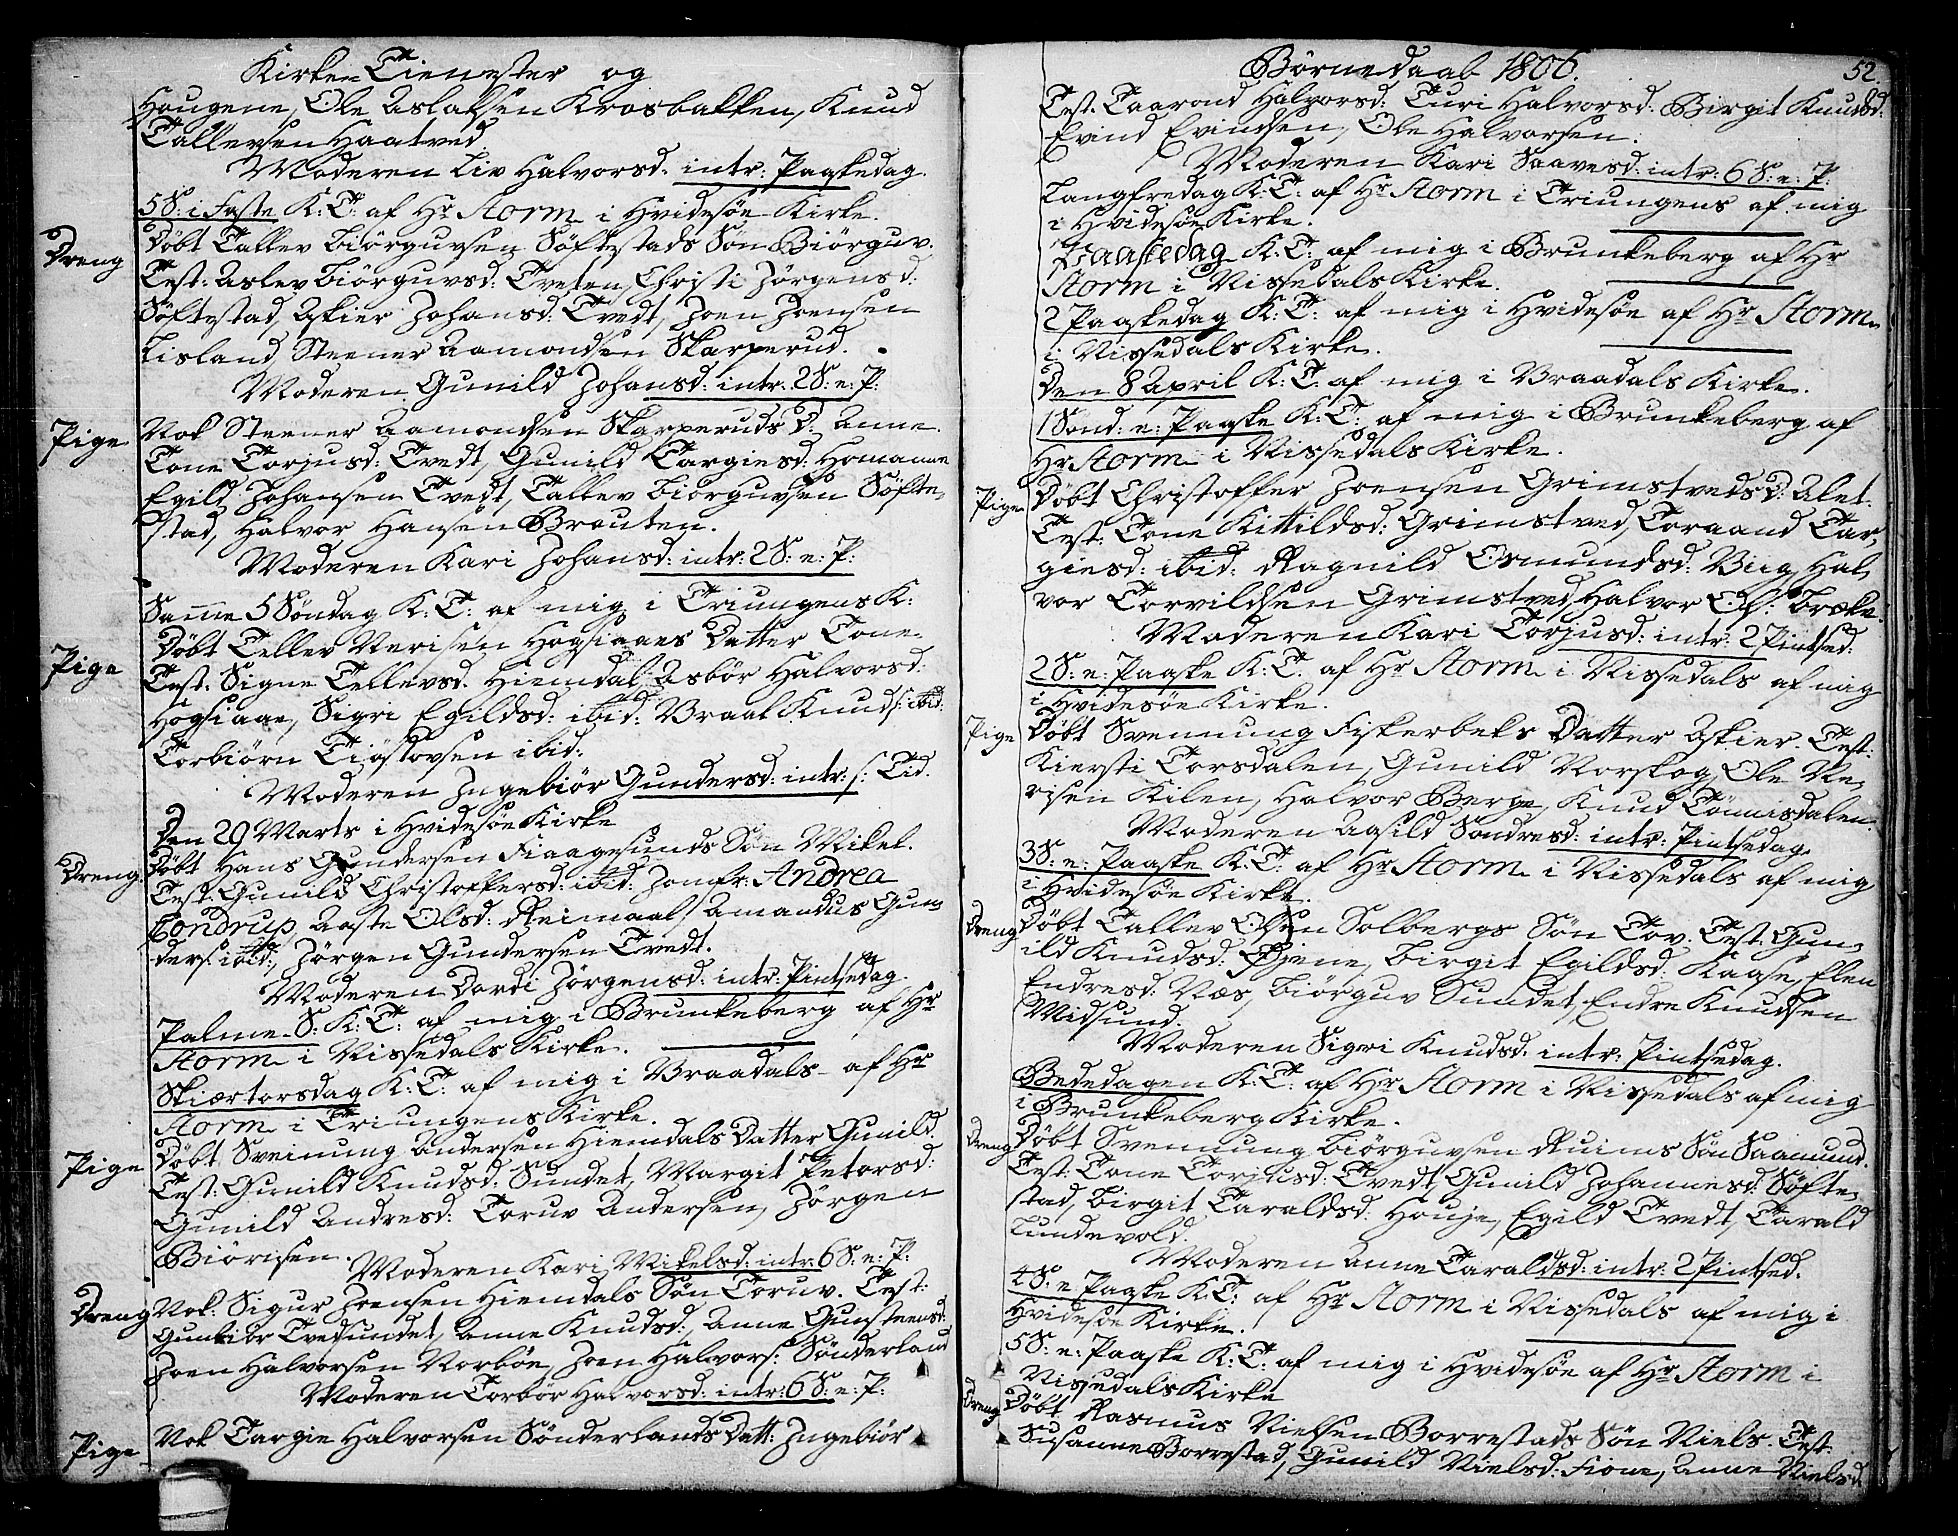 Kirke-Tienester og
Hougene, Ole Aslaksen Krosbakken, Knud
Tallevsen Haatved.
Moderen Liv Halvorsd: intr: Paaskedag.
5 S: i Faste K: T: af Hr Storm i Hvidesøe Kirke.
Dreng Døbt Tallev Biørguvsen Søftestads Søn Biørguv.
Test: Aslev Biørguvsd: Tveten, Christi Jørgensd:
Søftestad, Askier Johansd: Tvedt, Joen Joensen
Lisland, Steener Aamondsen Skarperud.
Moderen Gunild Johansd: intr: 2 S: e: P:
Pige Nok Steener Aamondsen Skarperuds D: Anne.
Tone Torjusd: Tvedt, Gunild Targiesd: Homanne
Egild Johansen Tvedt, Tallev Biörguvsen Søfte-
stad, Halvor Hansen Brauten.
Moderen Kari Johansd: intr: 2 S: e: P:
Samme 5 Søndag K: T: af mig i Triungens K:
Pige Døbt Tellev Nerisen Høgsiaaes Datter Tone.
Test: Signe Tellevsd. Hiemdal, Asbør Halvorsd:
Høgsiaae, Sigri Egildsd: ibid: Vraal Knuds: ibid:
Torbiørn Tiøstovsen ibid:
Moderen Ingebiör Gundersd: intr: s: Tid.
Den 29 Marts i Hvidesøe Kirke
Dreng Døbt Hans Gundersen Fiaagesunds Søn Mikel.
Test: Gunild Christoffersd: ibid: Jomfr: Andrea
Tondrup, Aaste Olsd: Reimaal, Amandus Gun-
ders: ibid:, Jørgen Gundersen Tvedt.
Moderen Dordi Jörgensd: intr: Pintsedag.
Palme-S: K: T: af mig i Brunkeberg af Hr
Storm i Nissedals Kirke.
Skiærtorsdag K: T: af mig i Vraadals af Hr
Storm i Triungens Kirke.
Døbt Sveinung Andersen Hiemdals Datter Gunild.
Pige Test: Gunild Knudsd: Sundet, Margit Petersd:
Gunild Andresd: Toruv Andersen, Jørgen
Biörisen.
Moderen Kari Mikelsd: intr: 6 S: e: P:
Dreng Nok: Sigur Joensen Hiemdals Søn Toruv. Test:
Gunbiör Tvedsundet, Anne Knudsd:, Anne Gunsteensd:
Joen Halvorsen Norbøe, Joen Halvors: Sønderland
Moderen Torbör Halvorsd: intr: 6 S: e: P:
Pige Nok Targie Halvorsen Sønderlands Datt: Ingebiör
Børnedaab 1806. 52.
Test: Taarond Halvorsd: Turi Halvorsd: Birgit Knudsd:
Evind Evindsen, Ole Halvorsen.
Moderen Kari Saavesd: intr: 6 S: e: P:
Langfredag K: T: af Hr Storm i Triungens af mig
i Hvidesøe Kirke.
Paaskedag K: T: af mig i Brunkeberg af Hr
Storm i Nissedals Kirke.
2 Paaskedag K: T: af mig i Hvidesøe af Hr Storm
i Nissedals Kirke.
Den 8 April K: T: af mig i Vraadals Kirke.
1 Sond: e: Paaske K: T: af mig i Brunkeberg af
Hr Storm i Nissedals Kirke.
Pige Døbt Christoffer Joensen Grimstveds D: Alet.
Test: Tone Kittildsd: Grimstved, Toraand Tar-
giesd: ibid: Ragnild Osmundsd: Viig, Hal-
vor Torvildsen Grimstved, Halvor Ols: Bræke.
Moderen Kari Torjusd: intr: 2 Pintsed:
2 S: e: Paaske K: T: af Hr Storm i Nissedals af mig
i Hvidesøe Kirke.
Pige Døbt Svennung Fiskerbeks Datter Askier. Test:
Kiersti Torsdalen, Gunild Norskog, Ole Ne-
risen Kilen, Halvor Berge, Knud Tönnisdalen.
Moderen Aasild Sondresd: intr: Pintsedag
3 S: e: Paaske K: T: af Hr Storm i Nissedals af mig
i Hvidesøe Kirke.
Dreng Døbt Tallev Olsen Solbergs Søn Tov. Test: Gun-
ild Knudsd: Öjene, Birgit Egildsd: Kaase, Elen
Endresd: Næs, Biörguv Sundet, Endre Knudsen
Midsund.
Moderen Sigri Knudsd: intr: Pintsedag.
Bededagen K: T: af Hr Storm i Nissedals af mig
i Brunkeberg Kirke.
Dreng Døbt Svennung Biörguvsen Ruims Søn Saamund.
Test: Tone Torjusd: Tvedt, Gunild Johannesd: Søfte-
stad, Birgit Taraldsd: Houje, Egild Tvedt, Tarald
Lundevold.
Moderen Anne Taraldsd: intr: 2 Pintsed.
4 S: e Paaske K: T: af Hr Storm i Nissedals af mig i
Hvidesøe Kirke.
5 S: e: Paaske K: T: af mig i Hvidesøe af Hr Storm i
Nissedals Kirke
Dreng Døbt Rasmus Nielsen Borrestads Søn Niels. Test:
Susanne Borrestad, Gunild Nielsd: Fione, Anne Nielsd: